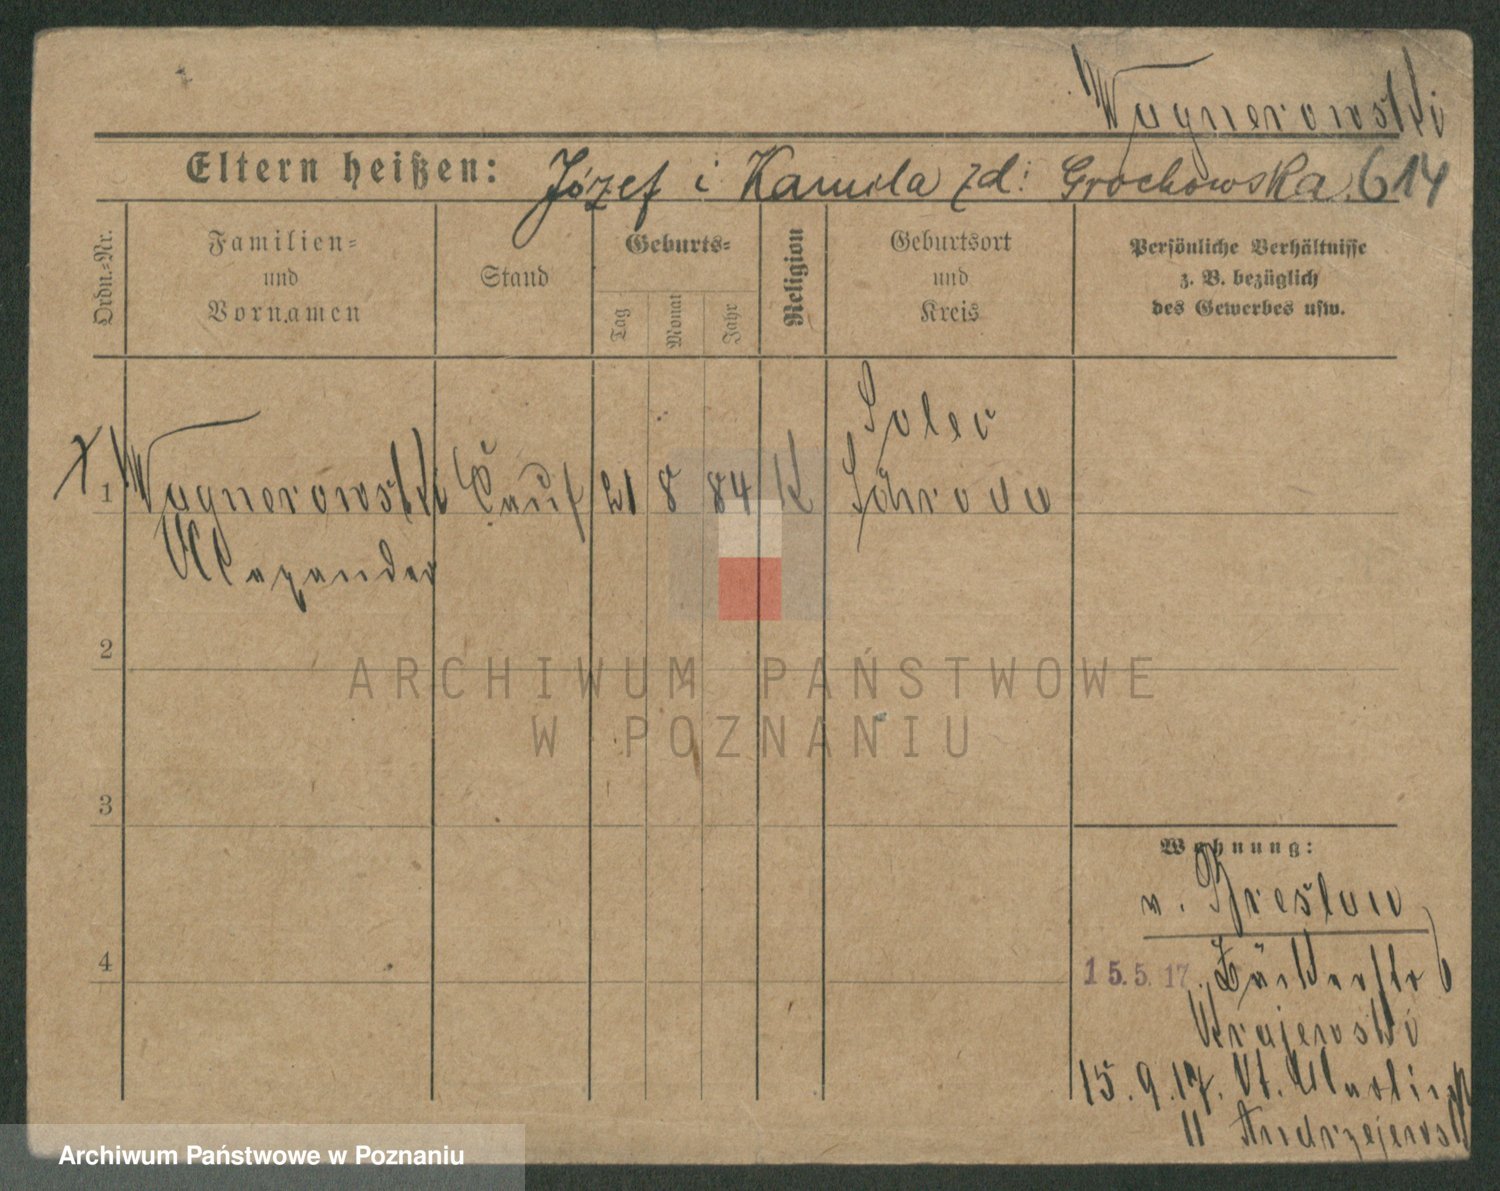 Wagnerowski
Eltern heißen: Józef i Kamila zd: Grochowska. 614
Ordn.-Nr.
Familien-
und
Vornamen
Stand
Geburts-
Tag
Monat
Jahr
Religion
Geburtsort
und
Kreis
Persönliche Verhältnisse
z. B. bezüglich
des Gewerbes usw.
Solec
1 Wagnerowski 21 8 84 K Schroda
Alexander
2
ARCHIWUM PAŃSTWOWE
W POZNANIU
3
Wohnung:
v. Breslau
4
15.5.17. Bäckerstr 6
Krajewski
15.9.17. St. Martin
11 Andrzejewski
Archiwum Państwowe w Poznaniu